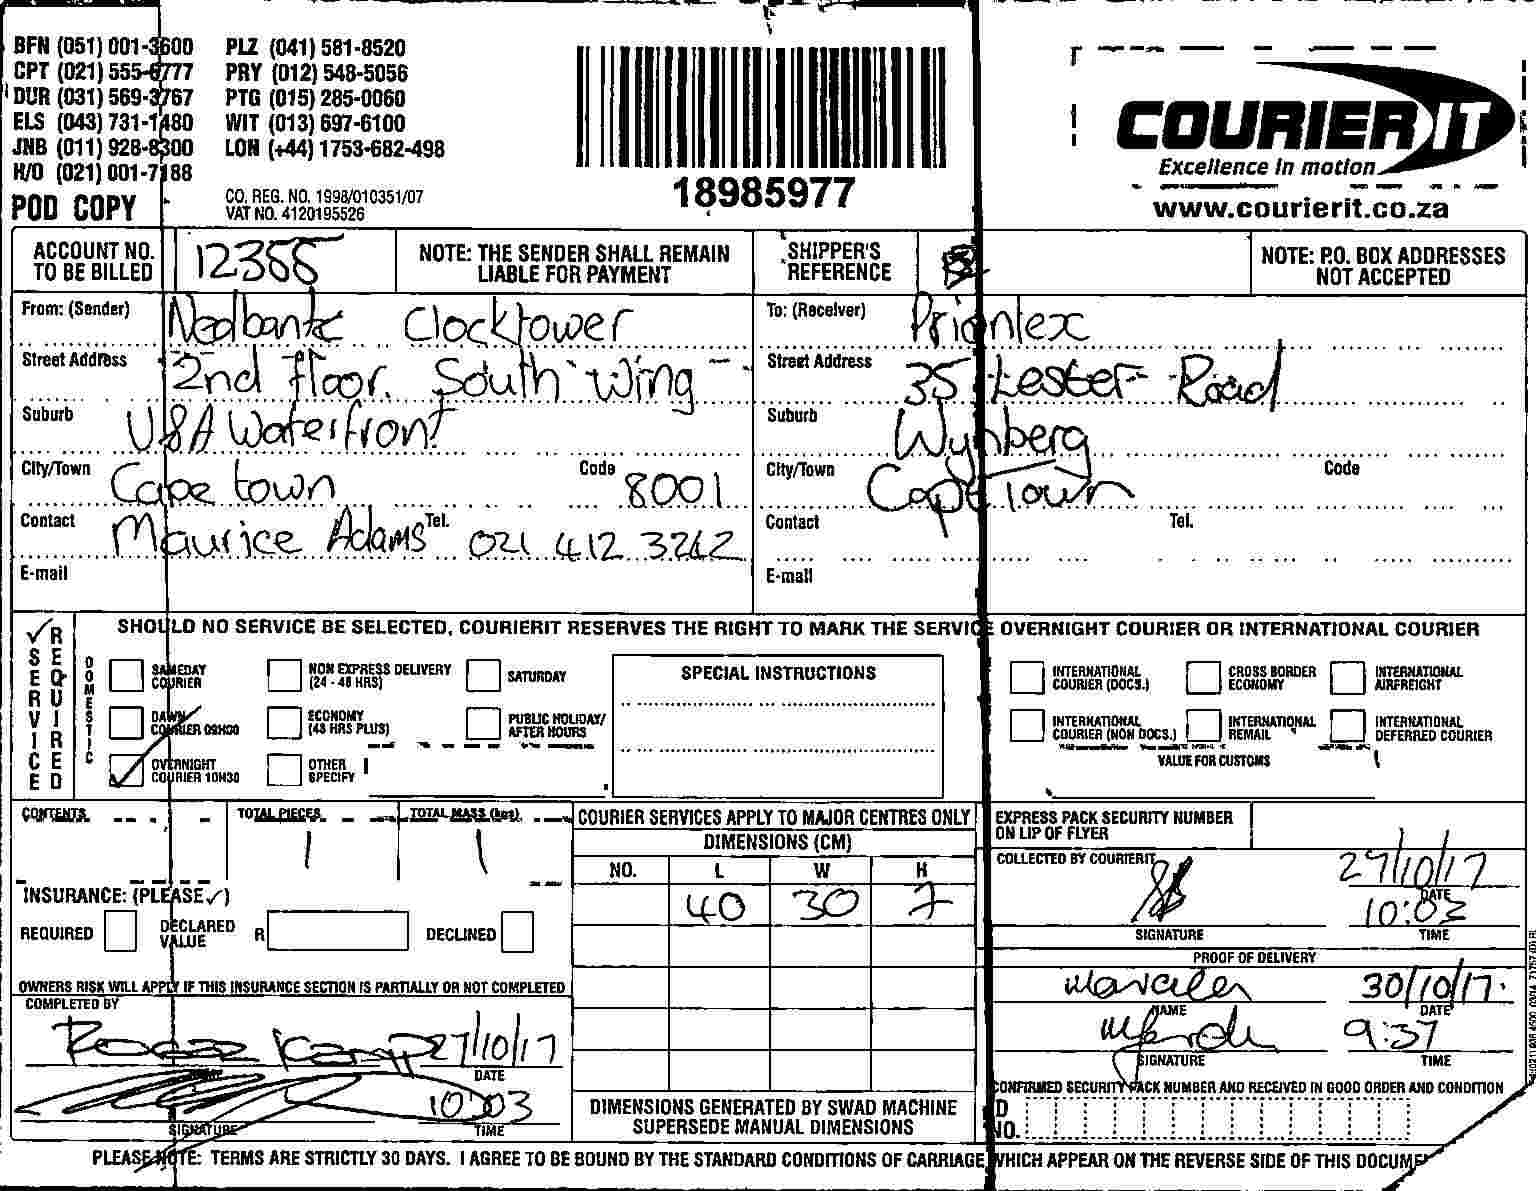 BFN (051) 001-3600 PLZ (041) 581-8520
CPT (021) 555-6777 PRY (012) 548-5056
DUR (031) 569-3767 PTG (015) 285-0060
ELS (043) 731-1480 WIT (013) 697-6100
JNB (011) 928-8300 LON (+44) 1753-682-498
H/O (021) 001-7188
POD COPY
CO. REG. NO. 1998/010351/07
VAT NO. 4120195526
18985977
COURIER IT
Excellence in motion
www.courierit.co.za
ACCOUNT NO. TO BE BILLED 12355
NOTE: THE SENDER SHALL REMAIN LIABLE FOR PAYMENT
SHIPPER'S REFERENCE
NOTE: P.O. BOX ADDRESSES NOT ACCEPTED
From: (Sender) Nedbank Clocktower
Street Address 2nd floor. South Wing
Suburb V&A Waterfront
City/Town Cape town Code 8001
Contact Maurice Adams Tel. 021 412 3262
E-mail
To: (Receiver) Priontex
Street Address 35 Lester Road
Suburb Wynberg
City/Town Cape Town Code
Contact Tel.
E-mail
SERVICE REQUIRED
SHOULD NO SERVICE BE SELECTED, COURIERIT RESERVES THE RIGHT TO MARK THE SERVICE OVERNIGHT COURIER OR INTERNATIONAL COURIER
DOMESTIC
SAMEDAY COURIER
NON EXPRESS DELIVERY (24 - 48 HRS)
SATURDAY
DAWN COURIER 09H00
ECONOMY (48 HRS PLUS)
PUBLIC HOLIDAY/ AFTER HOURS
OVERNIGHT COURIER 10H30
OTHER SPECIFY
SPECIAL INSTRUCTIONS
INTERNATIONAL COURIER (DOCS.)
CROSS BORDER ECONOMY
INTERNATIONAL AIRFREIGHT
INTERNATIONAL COURIER (NON DOCS.)
INTERNATIONAL REMAIL
INTERNATIONAL DEFERRED COURIER
VALUE FOR CUSTOMS
CONTENTS
TOTAL PIECES 1
TOTAL MASS (kgs) 1
INSURANCE: (PLEASE ✓)
REQUIRED DECLARED VALUE R DECLINED
OWNERS RISK WILL APPLY IF THIS INSURANCE SECTION IS PARTIALLY OR NOT COMPLETED
COMPLETED BY
27/10/17
DATE
10:03
SIGNATURE TIME
COURIER SERVICES APPLY TO MAJOR CENTRES ONLY
DIMENSIONS (CM)
NO. L W H
40 30 7
DIMENSIONS GENERATED BY SWAD MACHINE
SUPERSEDE MANUAL DIMENSIONS
EXPRESS PACK SECURITY NUMBER ON LIP OF FLYER
COLLECTED BY COURIERIT 27/10/17
DATE
10:03
SIGNATURE TIME
PROOF OF DELIVERY
30/10/17
NAME DATE
9:37
SIGNATURE TIME
CONFIRMED SECURITY PACK NUMBER AND RECEIVED IN GOOD ORDER AND CONDITION
ID NO.
PLEASE NOTE: TERMS ARE STRICTLY 30 DAYS. I AGREE TO BE BOUND BY THE STANDARD CONDITIONS OF CARRIAGE WHICH APPEAR ON THE REVERSE SIDE OF THIS